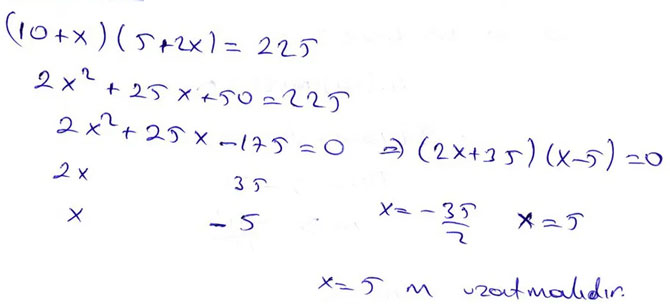 (10+x)(5+2x)=225
2x²+25x+50=225
2x²+25x-175=0 ⇒ (2x+35)(x-5)=0
2x 35
x -5
x=-35/2 x=5
x=5 m uzatmalıdır.